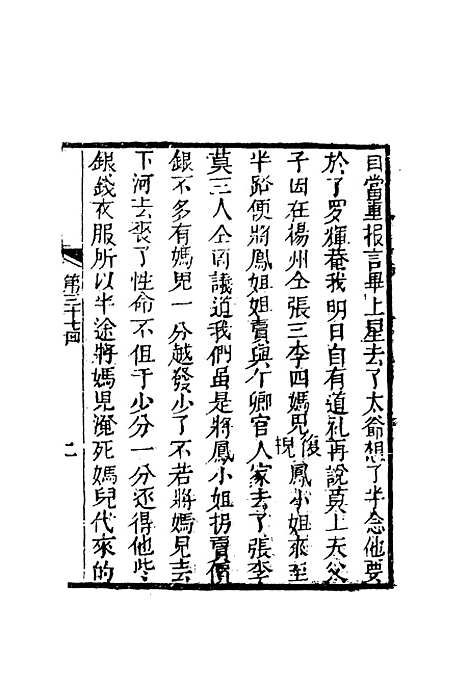 目當重报言畢上星去了太爺想了半念他要
於了罗輝菴我明日自有道礼再說莫上天父
子因在楊州仝張三李四媽兒後悮鳳小姐来至
半路便將鳳姐姐賣與個鄉官人家去了張李
莫三人仝商議道我們虽是將鳳小姐拐賣價
銀不多有媽兒一分越發少了不若將媽兒去
下河去丧了性命不但于少分一分还得他些
銀錢衣服所以半途將媽兒淹死媽兒代來的
第三十七囬
二